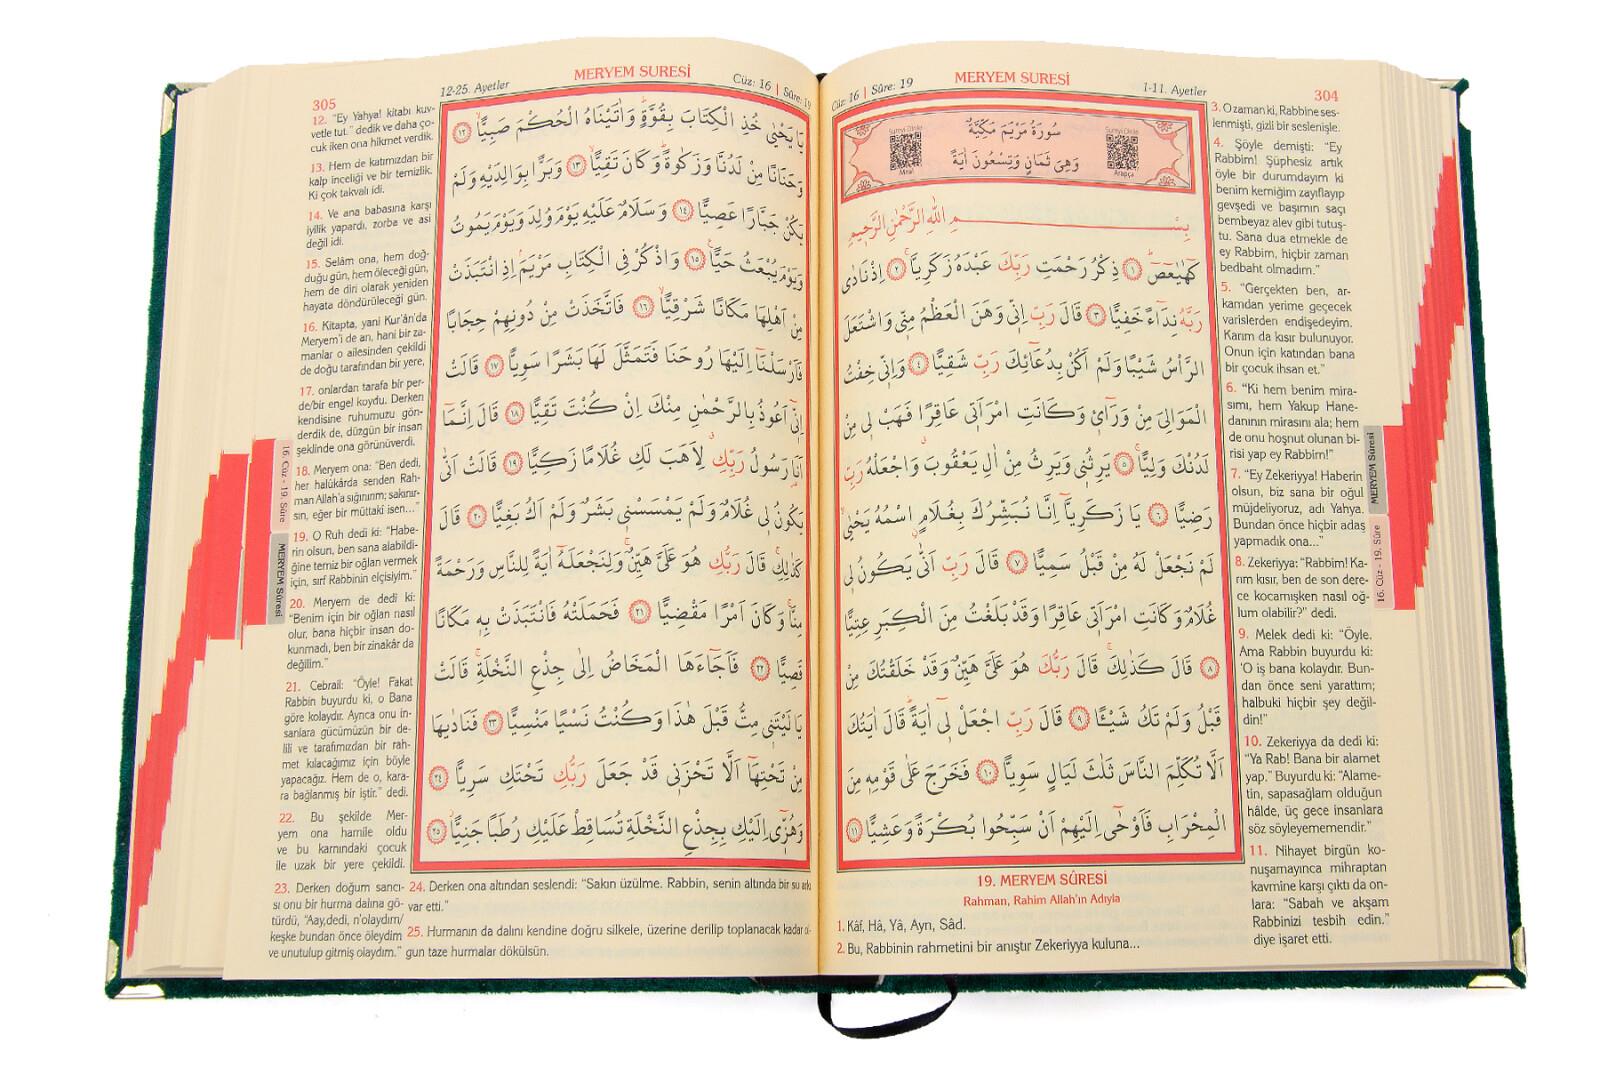 304
MERYEM SURESİ
Cüz: 16 | Sûre: 19
1-11. Ayetler
سُورَةُ مَرْيَمَ مَكِّيَّةٌ
وَهِيَ ثَمَانٍ وَتِسْعُونَ اٰيَةً
Meal
Arapça
بِسْمِ اللّٰهِ الرَّحْمٰنِ الرَّحِيمِ
كٓهٰيٰعٓصٓ ﴿١﴾ ذِكْرُ رَحْمَتِ رَبِّكَ عَبْدَهُ زَكَرِيَّا ﴿٢﴾ اِذْ نَادٰى
رَبَّهُ نِدَٓاءً خَفِيًّا ﴿٣﴾ قَالَ رَبِّ اِنّ۪ي وَهَنَ الْعَظْمُ مِنّ۪ي وَاشْتَعَلَ
الرَّأْسُ شَيْبًا وَلَمْ اَكُنْ بِدُعَٓائِكَ رَبِّ شَقِيًّا ﴿٤﴾ وَاِنّ۪ي خِفْتُ
الْمَوَالِيَ مِنْ وَرَٓاء۪ي وَكَانَتِ امْرَاَت۪ي عَاقِرًا فَهَبْ ل۪ي مِنْ
لَدُنْكَ وَلِيًّا ﴿٥﴾ يَرِثُن۪ي وَيَرِثُ مِنْ اٰلِ يَعْقُوبَ وَاجْعَلْهُ رَبِّ
رَضِيًّا ﴿٦﴾ يَا زَكَرِيَّٓا اِنَّا نُبَشِّرُكَ بِغُلَامٍ اسْمُهُ يَحْيٰى
لَمْ نَجْعَلْ لَهُ مِنْ قَبْلُ سَمِيًّا ﴿٧﴾ قَالَ رَبِّ اَنّٰى يَكُونُ ل۪ي
غُلَامٌ وَكَانَتِ امْرَاَت۪ي عَاقِرًا وَقَدْ بَلَغْتُ مِنَ الْكِبَرِ عِتِيًّا
﴿٨﴾ قَالَ كَذٰلِكَ قَالَ رَبُّكَ هُوَ عَلَيَّ هَيِّنٌ وَقَدْ خَلَقْتُكَ مِنْ
قَبْلُ وَلَمْ تَكُ شَيْـًٔا ﴿٩﴾ قَالَ رَبِّ اجْعَلْ ل۪ٓي اٰيَةً قَالَ اٰيَتُكَ
اَلَّا تُكَلِّمَ النَّاسَ ثَلٰثَ لَيَالٍ سَوِيًّا ﴿١٠﴾ فَخَرَجَ عَلٰى قَوْمِه۪ مِنَ
الْمِحْرَابِ فَاَوْحٰٓى اِلَيْهِمْ اَنْ سَبِّحُوا بُكْرَةً وَعَشِيًّا ﴿١١﴾
19. MERYEM SÛRESİ
Rahman, Rahim Allah'ın Adıyla
1. Kâf, Hâ, Yâ, Ayn, Sâd.
2. Bu, Rabbinin rahmetini bir anıştır Zekeriyya kuluna...
3. O zaman ki, Rabbine ses-
lenmişti, gizli bir seslenişle.
4. Şöyle demişti: "Ey
Rabbim! Şüphesiz artık
öyle bir durumdayım ki
benim kemiğim zayıflayıp
gevşedi ve başımın saçı
bembeyaz alev gibi tutuş-
tu. Sana dua etmekle de
ey Rabbim, hiçbir zaman
bedbaht olmadım."
5. "Gerçekten ben, ar-
kamdan yerime geçecek
varislerden endişedeyim.
Karım da kısır bulunuyor.
Onun için katından bana
bir çocuk ihsan et."
6. "Ki hem benim mira-
sımı, hem Yakup Hane-
danının mirasını ala; hem
de onu hoşnut olunan bi-
risi yap ey Rabbim!"
7. "Ey Zekeriyya! Haberin
olsun, biz sana bir oğul
müjdeliyoruz, adı Yahya.
Bundan önce hiçbir adaş
yapmadık ona..."
8. Zekeriyya: "Rabbim! Ka-
rım kısır, ben de son dere-
ce kocamışken nasıl oğ-
lum olabilir?" dedi.
9. Melek dedi ki: "Öyle.
Ama Rabbin buyurdu ki:
'O iş bana kolaydır. Bun-
dan önce seni yarattım;
halbuki hiçbir şey değil-
din!"
10. Zekeriyya da dedi ki:
"Ya Rab! Bana bir alamet
yap." Buyurdu ki: "Alame-
tin, sapasağlam olduğun
hâlde, üç gece insanlara
söz söyleyememendir."
11. Nihayet birgün ko-
nuşamayınca mihraptan
kavmine karşı çıktı da on-
lara: "Sabah ve akşam
Rabbinizi tesbih edin."
diye işaret etti.
MERYEM Sûresi
16. Cüz - 19. Sûre
305
12-25. Ayetler
MERYEM SURESİ
Cüz: 16 | Sûre: 19
يَا يَحْيٰى خُذِ الْكِتَابَ بِقُوَّةٍ وَاٰتَيْنَاهُ الْحُكْمَ صَبِيًّا ﴿١٢﴾
وَحَنَانًا مِنْ لَدُنَّا وَزَكٰوةً وَكَانَ تَقِيًّا ﴿١٣﴾ وَبَرًّا بِوَالِدَيْهِ وَلَمْ
يَكُنْ جَبَّارًا عَصِيًّا ﴿١٤﴾ وَسَلَامٌ عَلَيْهِ يَوْمَ وُلِدَ وَيَوْمَ يَمُوتُ
وَيَوْمَ يُبْعَثُ حَيًّا ﴿١٥﴾ وَاذْكُرْ فِي الْكِتَابِ مَرْيَمَ اِذِ انْتَبَذَتْ
مِنْ اَهْلِهَا مَكَانًا شَرْقِيًّا ﴿١٦﴾ فَاتَّخَذَتْ مِنْ دُونِهِمْ حِجَابًا
فَاَرْسَلْنَٓا اِلَيْهَا رُوحَنَا فَتَمَثَّلَ لَهَا بَشَرًا سَوِيًّا ﴿١٧﴾ قَالَتْ
اِنّ۪ٓي اَعُوذُ بِالرَّحْمٰنِ مِنْكَ اِنْ كُنْتَ تَقِيًّا ﴿١٨﴾ قَالَ اِنَّمَٓا
اَنَا رَسُولُ رَبِّكِ لِاَهَبَ لَكِ غُلَامًا زَكِيًّا ﴿١٩﴾ قَالَتْ اَنّٰى
يَكُونُ ل۪ي غُلَامٌ وَلَمْ يَمْسَسْن۪ي بَشَرٌ وَلَمْ اَكُ بَغِيًّا ﴿٢٠﴾ قَالَ
كَذٰلِكِ قَالَ رَبُّكِ هُوَ عَلَيَّ هَيِّنٌ وَلِنَجْعَلَهُٓ اٰيَةً لِلنَّاسِ وَرَحْمَةً
مِنَّا وَكَانَ اَمْرًا مَقْضِيًّا ﴿٢١﴾ فَحَمَلَتْهُ فَانْتَبَذَتْ بِه۪ مَكَانًا
قَصِيًّا ﴿٢٢﴾ فَاَجَٓاءَهَا الْمَخَاضُ اِلٰى جِذْعِ النَّخْلَةِ قَالَتْ
يَا لَيْتَن۪ي مِتُّ قَبْلَ هٰذَا وَكُنْتُ نَسْيًا مَنْسِيًّا ﴿٢٣﴾ فَنَادٰيهَا
مِنْ تَحْتِهَٓا اَلَّا تَحْزَن۪ي قَدْ جَعَلَ رَبُّكِ تَحْتَكِ سَرِيًّا ﴿٢٤﴾
وَهُزّ۪ٓي اِلَيْكِ بِجِذْعِ النَّخْلَةِ تُسَاقِطْ عَلَيْكِ رُطَبًا جَنِيًّا ﴿٢٥﴾
12. "Ey Yahya! kitabı kuv-
vetle tut." dedik ve daha ço-
cuk iken ona hikmet verdik.
13. Hem de katımızdan bir
kalp inceliği ve bir temizlik.
Ki çok takvalı idi.
14. Ve ana babasına karşı
iyilik yapardı, zorba ve asi
değil idi.
15. Selâm ona, hem doğ-
duğu gün, hem öleceği gün,
hem de diri olarak yeniden
hayata döndürüleceği gün.
16. Kitapta, yani Kur'ân'da
Meryem'i de an, hani bir za-
manlar o ailesinden çekildi
de doğu tarafından bir yere,
17. onlardan tarafa bir per-
de/bir engel koydu. Derken
kendisine ruhumuzu gön-
derdik de, düzgün bir insan
şeklinde ona görünüverdi.
18. Meryem ona: "Ben dedi,
her halükârda senden Rah-
man Allah'a sığınırım; sakınır-
sın, eğer bir müttakî isen..."
19. O Ruh dedi ki: "Habe-
rin olsun, ben sana alabildi-
ğine temiz bir oğlan vermek
için, sırf Rabbinin elçisiyim."
20. Meryem de dedi ki:
"Benim için bir oğlan nasıl
olur, bana hiçbir insan do-
kunmadı, ben bir zinakâr da
değilim."
21. Cebrail: "Öyle! Fakat
Rabbin buyurdu ki, o Bana
göre kolaydır. Ayrıca onu in-
sanlara gücümüzün bir de-
lili ve tarafımızdan bir rah-
met kılacağımız için böyle
yapacağız. Hem de o, kara-
ra bağlanmış bir iştir." dedi.
22. Bu şekilde Mer-
yem ona hamile oldu
ve bu karnındaki çocuk
ile uzak bir yere çekildi.
23. Derken doğum sancı-
sı onu bir hurma dalına gö-
türdü, "Aay,dedi, n'olaydım/
keşke bundan önce öleydim
ve unutulup gitmiş olaydım."
24. Derken ona altından seslendi: "Sakın üzülme. Rabbin, senin altında bir su
var etti."
25. Hurmanın da dalını kendine doğru silkele, üzerine derilip toplanacak kadar
gun taze hurmalar dökülsün.
16. Cüz - 19. Sûre
MERYEM Sûresi